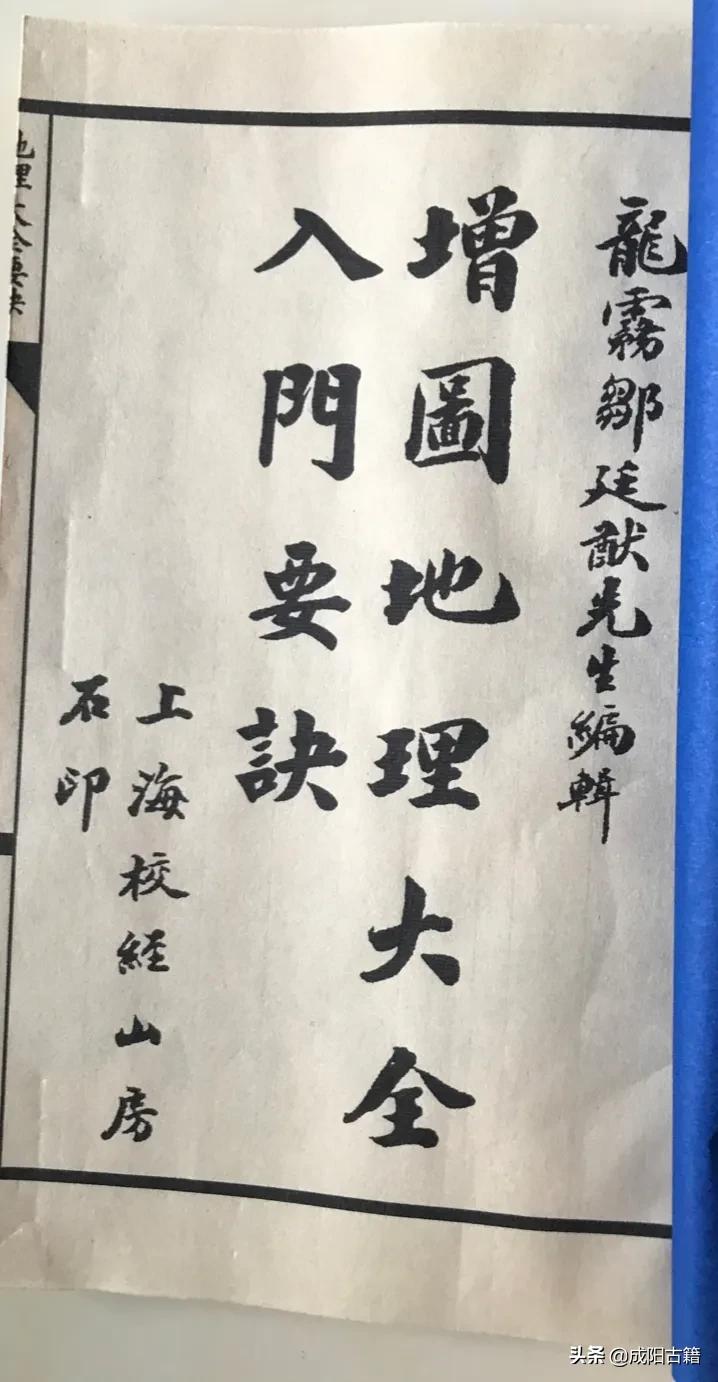 龍霧鄒廷猷先生編輯
增圖地理大全
入門要訣
上海校經山房
石印
地理大全要訣
头条 @成阳古籍